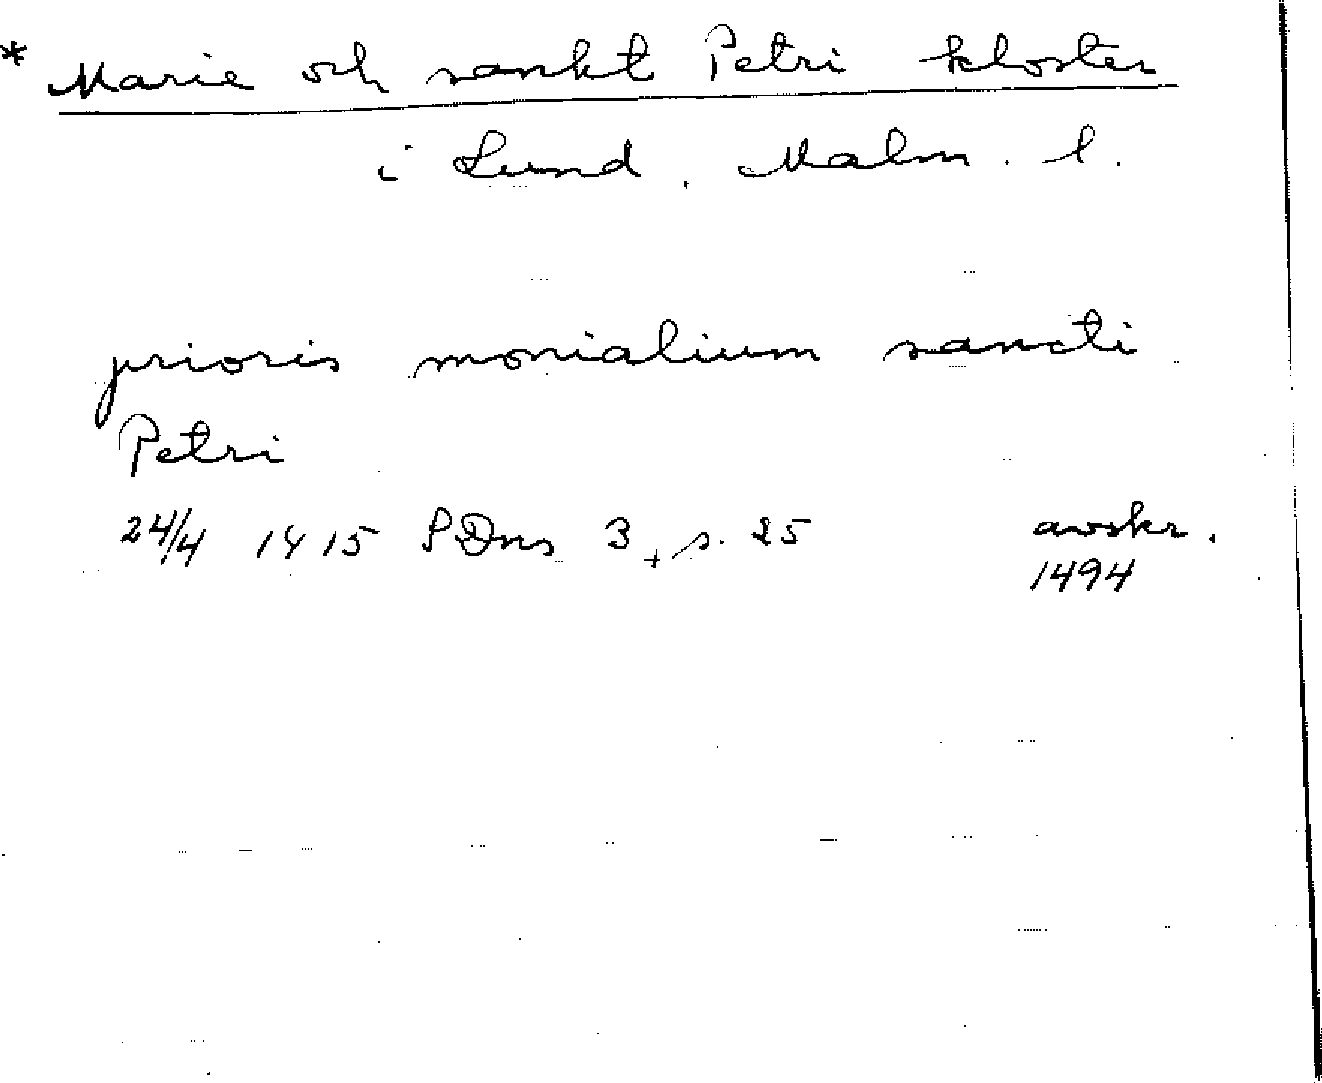 * Marie och sankt Petri kloster
i Lund. Malm. l.
prioris monialium sancti
Petri
24/4 1415 SDns 3, s. 25 avskr.
1494